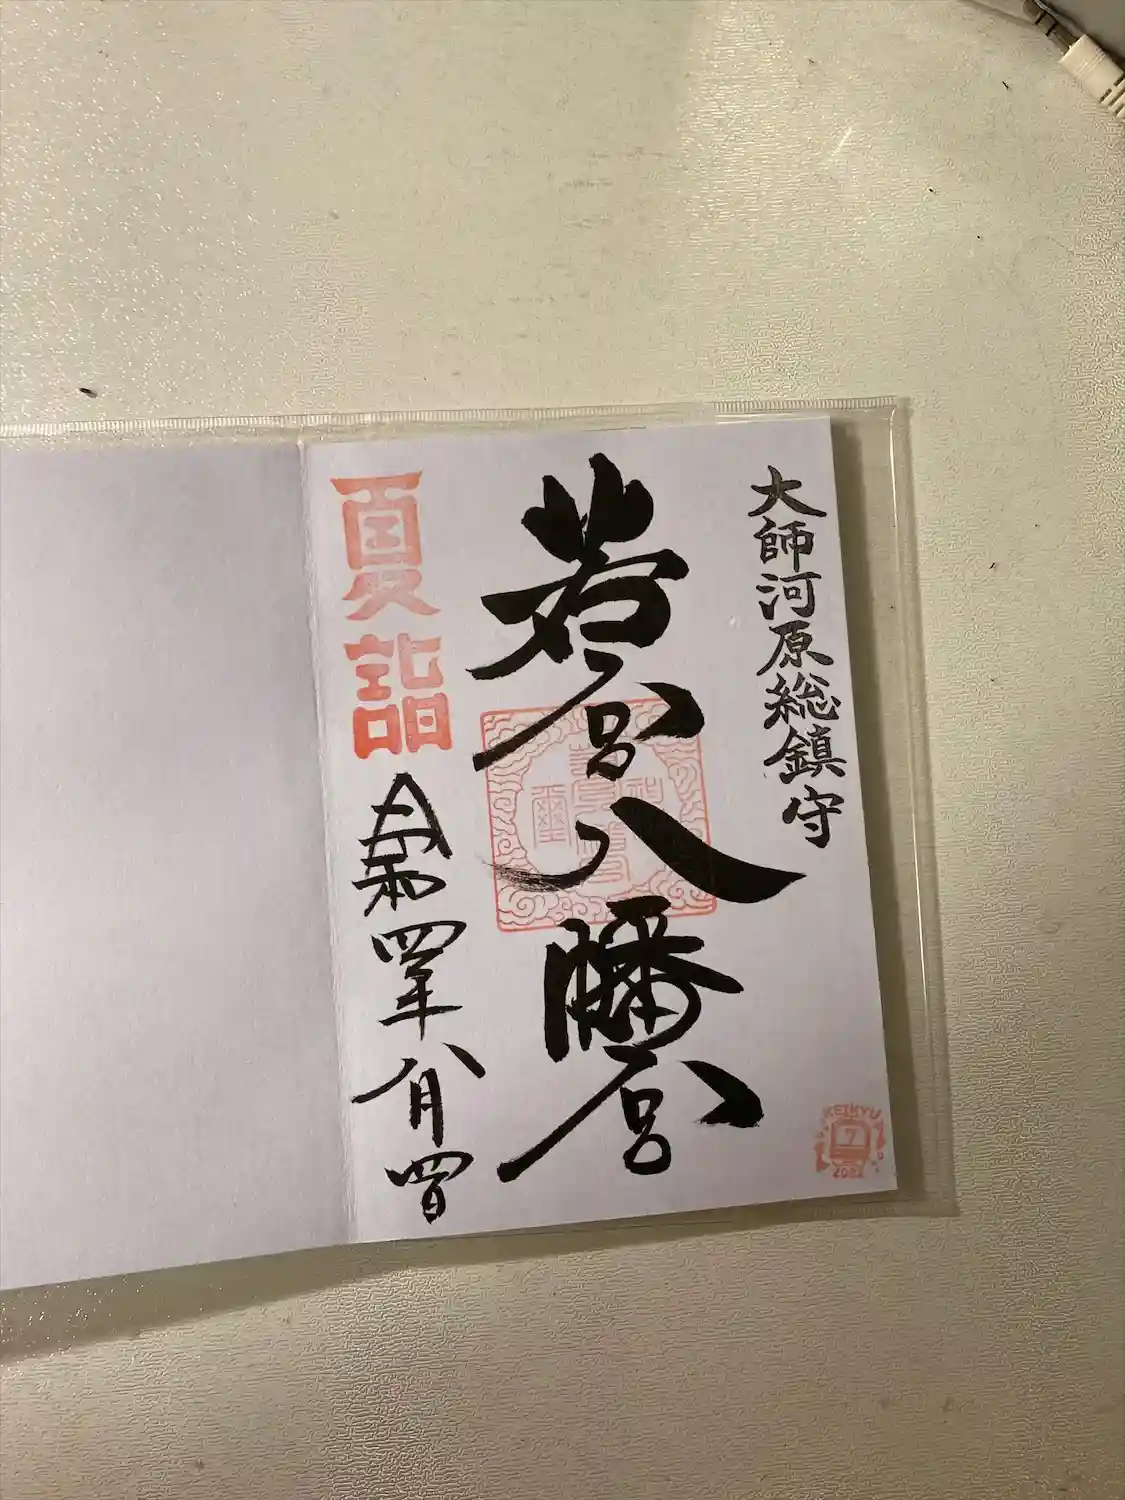 大師河原総鎮守
若宮八幡宮
夏詣
令和四年八月四日
KEIKYU
7
2002